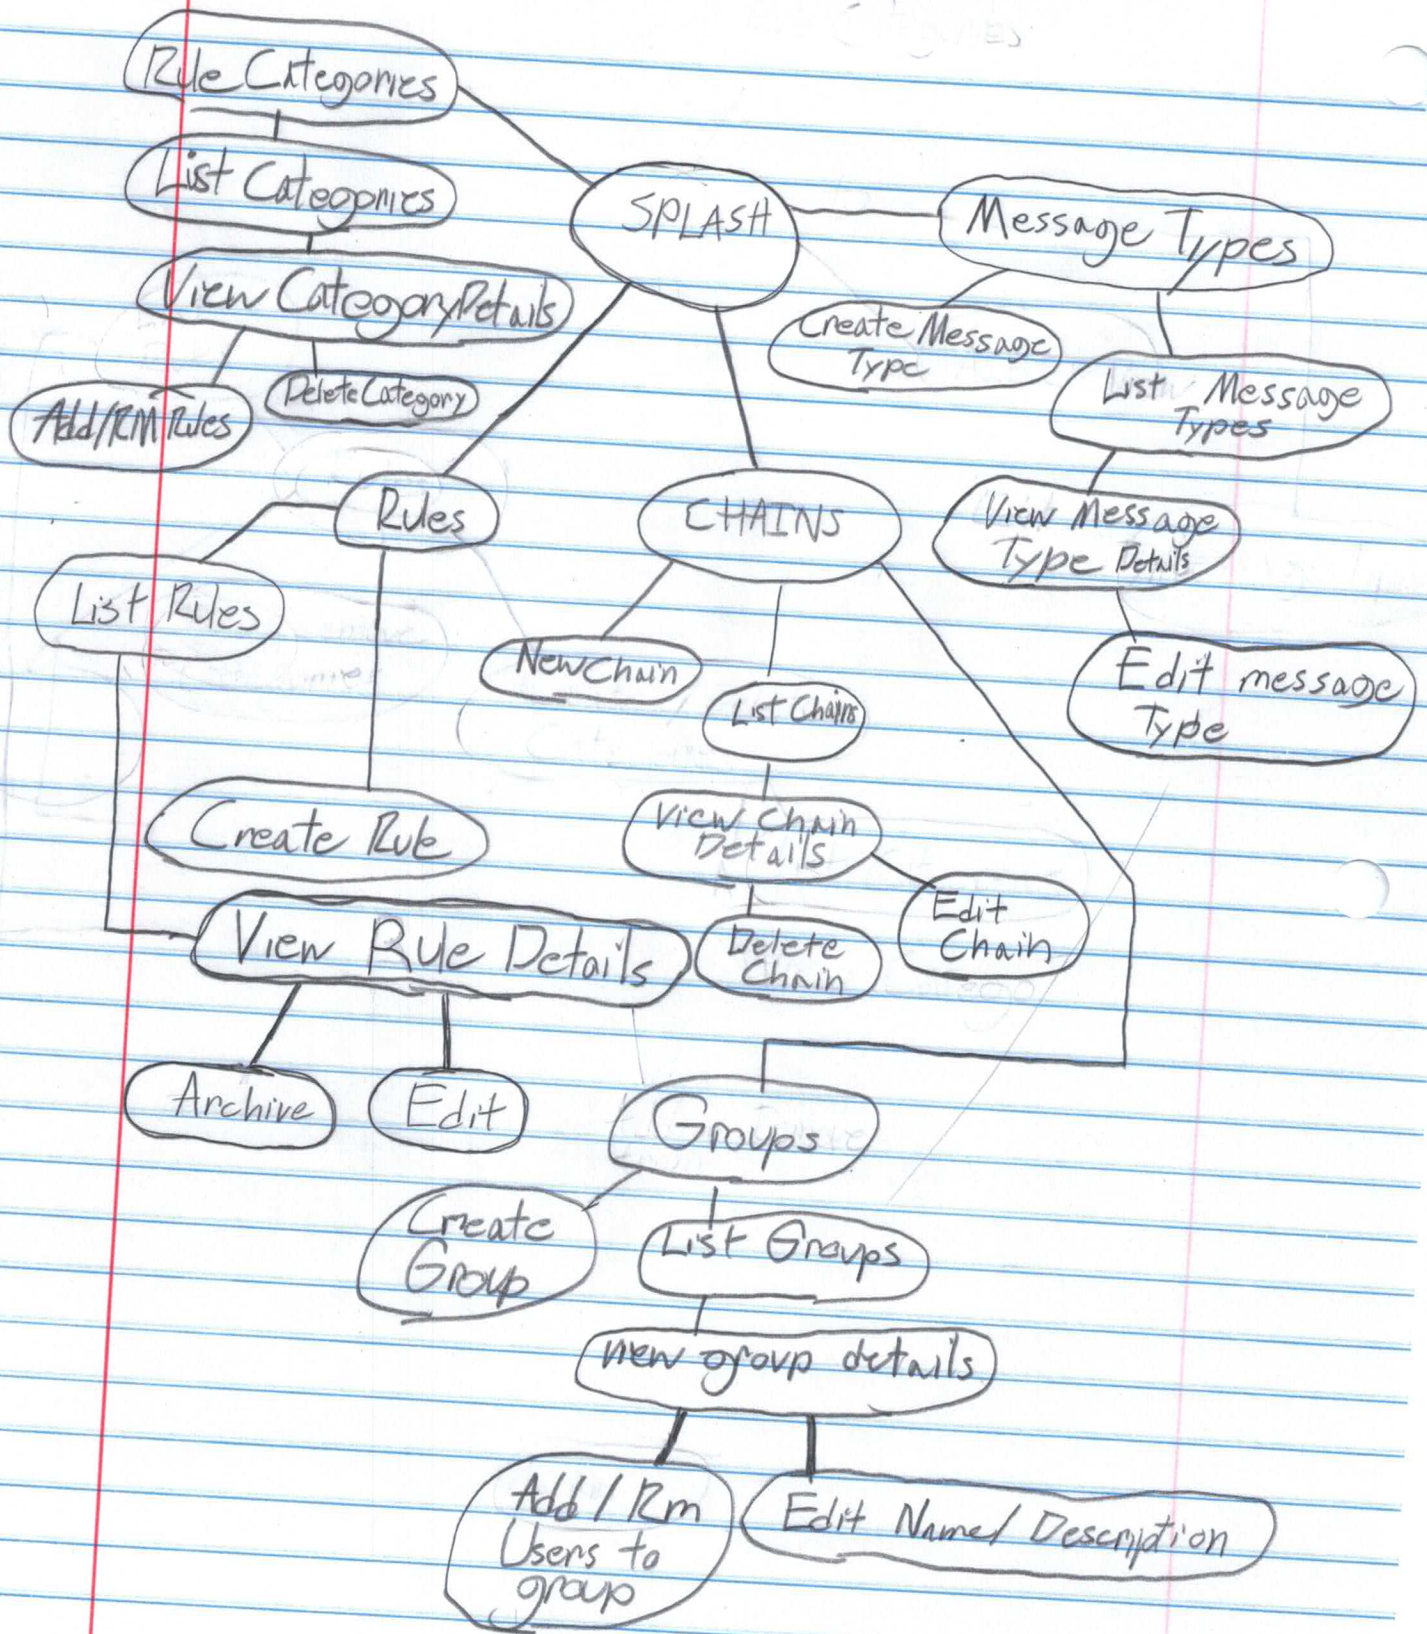 Rule Categories
List Categories
View Category Details
Add/RM Rules
Delete Category
SPLASH
Message Types
Create Message
Type
List Message
Types
View Message
Type Details
Edit message
Type
Rules
List Rules
Create Rule
View Rule Details
Archive
Edit
CHAINS
New Chain
List Chains
View Chain
Details
Delete
Chain
Edit
Chain
Groups
Create
Group
List Groups
view group details
Add/Rm
Users to
group
Edit Name/Description